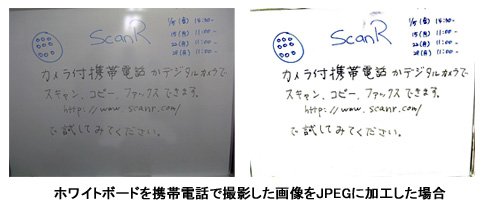 ScanR
1/5(金) 15:30-
15(月) 11:00-
22(月) 11:00-
29(月) 11:00-
カメラ付携帯電話かデジタルカメラで
スキャン、コピー、ファックスできます。
http://www.scanr.com/
で試してみてください。
ScanR
1/5(金) 15:30-
15(月) 11:00-
22(月) 11:00-
29(月) 11:00-
カメラ付携帯電話かデジタルカメラで
スキャン、コピー、ファックスできます。
http://www.scanr.com/
で試してみてください。
ホワイトボードを携帯電話で撮影した画像をJPEGに加工した場合